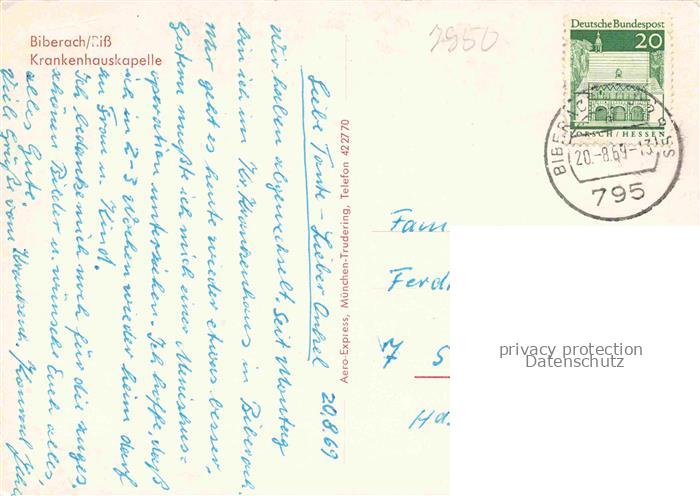 Biberach/Riß
Krankenhauskapelle
7950
Deutsche Bundespost
20
LORSCH/HESSEN
BIBERACH
20.-8.69-13
795
Liebe Tante - Lieber Onkel 20.8.69
Wir haben abgewechselt. Seit Montag
bin ich im Kr. Krankenhaus in Biberach.
Mir geht es heute wieder etwas besser,
Gestern mußte ich mich einer Meniskus-
operation unterziehen. Ich hoffe, daß
ich in 2-3 Wochen wieder heim darf
zu Frau u. Kind.
Ich bedanke mich noch für die zuges.
schönen Bilder u. wünsche Euch alles,
alles Gute.
Viele Grüße vom Konrad
Aero-Express, München-Trudering, Telefon 422770
Fam
Ferd
7 S
Ha
privacy protection
Datenschutz